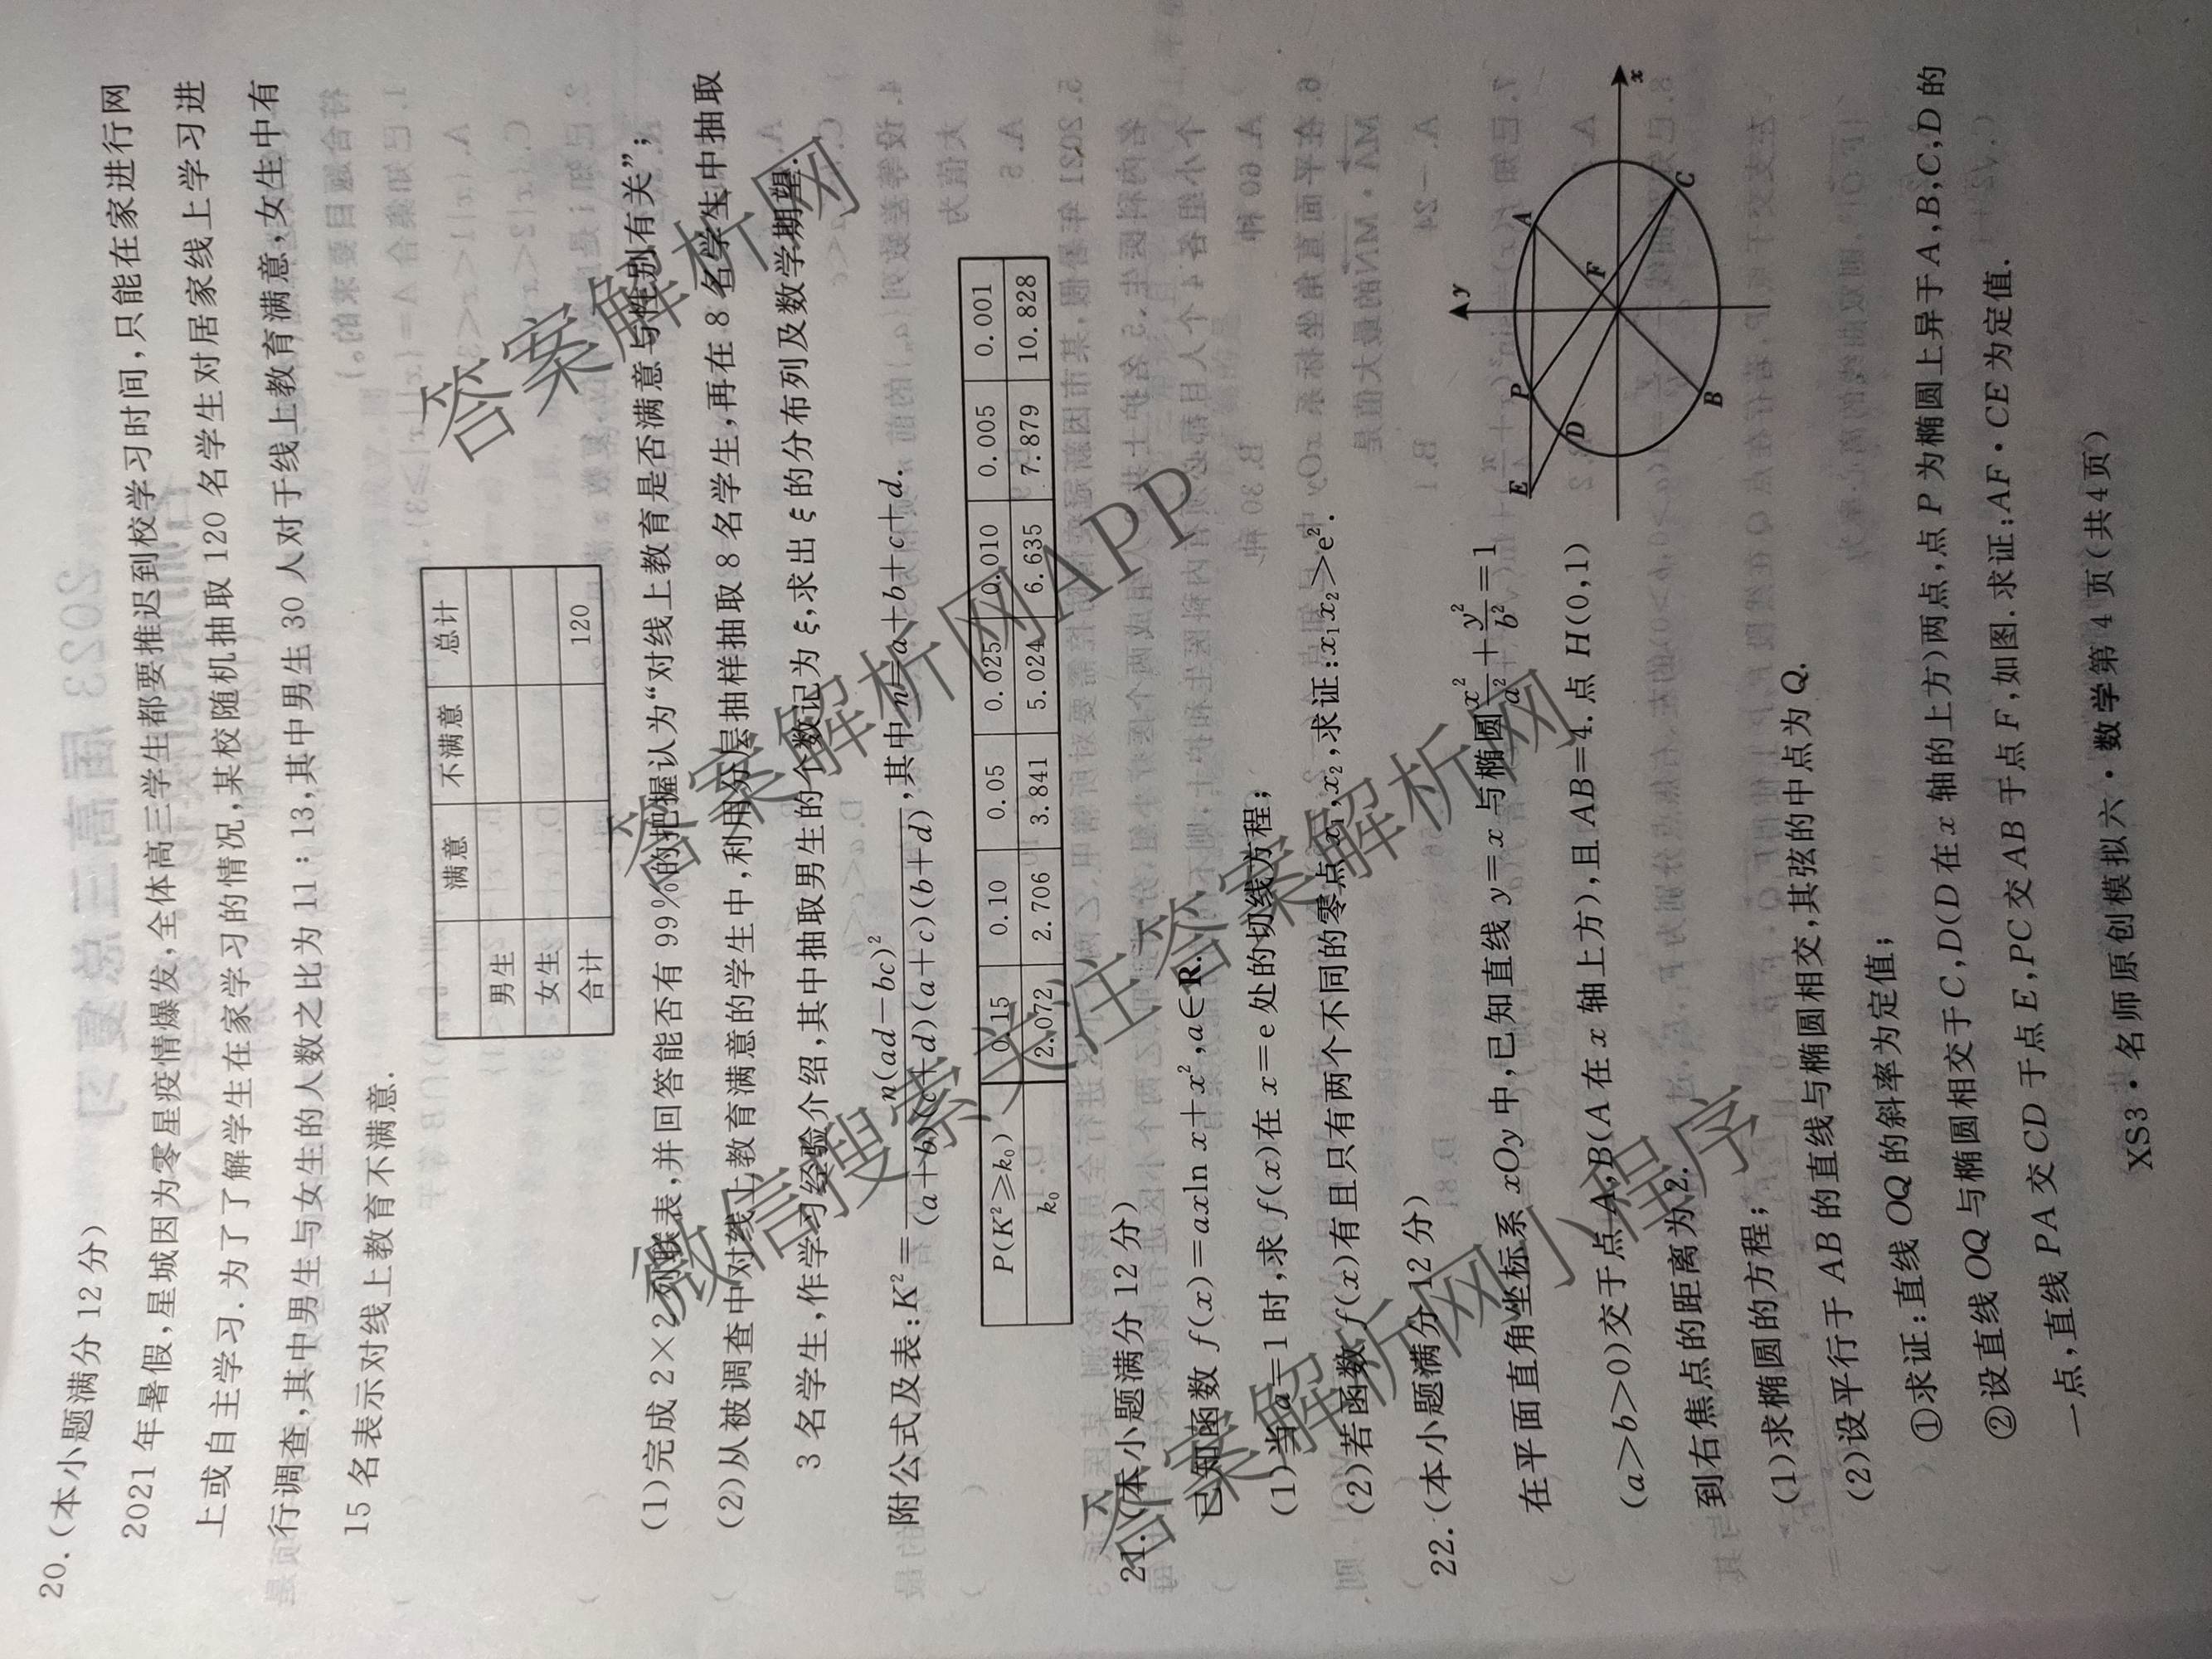 20.(本小题满分 12 分)
2021 年暑假,星城因为零星疫情爆发,全体高三学生都要推迟到校学习时间,只能在家进行网
上或自主学习.为了了解学生在家学习的情况,某校随机抽取 120 名学生对居家线上学习进
行调查,其中男生与女生的人数之比为 11:13,其中男生 30 人对于线上教育满意,女生中有
15 名表示对线上教育不满意.
满意 不满意 总计
男生
女生
合计 120
(1)完成 2×2 列联表,并回答能否有 99%的把握认为“对线上教育是否满意与性别有关”;
(2)从被调查中对线上教育满意的学生中,利用分层抽样抽取 8 名学生,再在 8 名学生中抽取
3 名学生,作学习经验介绍,其中抽取男生的个数记为 ξ,求出 ξ 的分布列及数学期望.
附公式及表:K²=n(ad-bc)²/(a+b)(c+d)(a+c)(b+d),其中 n=a+b+c+d.
P(K²≥k₀) 0.15 0.10 0.05 0.025 0.010 0.005 0.001
k₀ 2.072 2.706 3.841 5.024 6.635 7.879 10.828
21.(本小题满分 12 分)
已知函数 f(x)=axln x+x²,a∈R.
(1)当 a=1 时,求 f(x)在 x=e 处的切线方程;
(2)若函数 f(x)有且只有两个不同的零点 x₁,x₂,求证:x₁x₂>e².
22.(本小题满分 12 分)
在平面直角坐标系 xOy 中,已知直线 y=x 与椭圆x²/a²+y²/b²=1
(a>b>0)交于点 A,B(A 在 x 轴上方),且 AB=4.点 H(0,1)
到右焦点的距离为 2.
y
x
E
P
A
D
F
B
C
(1)求椭圆的方程;
(2)设平行于 AB 的直线与椭圆相交,其弦的中点为 Q.
①求证:直线 OQ 的斜率为定值;
②设直线 OQ 与椭圆相交于 C,D(D 在 x 轴的上方)两点,点 P 为椭圆上异于 A,B,C,D 的
一点,直线 PA 交 CD 于点 E,PC 交 AB 于点 F,如图.求证:AF·CE 为定值.
XS3·名师原创模拟六·数学第 4 页(共 4 页)
答案解析网
答案解析网APP
微信搜索关注答案解析网
答案解析网小程序